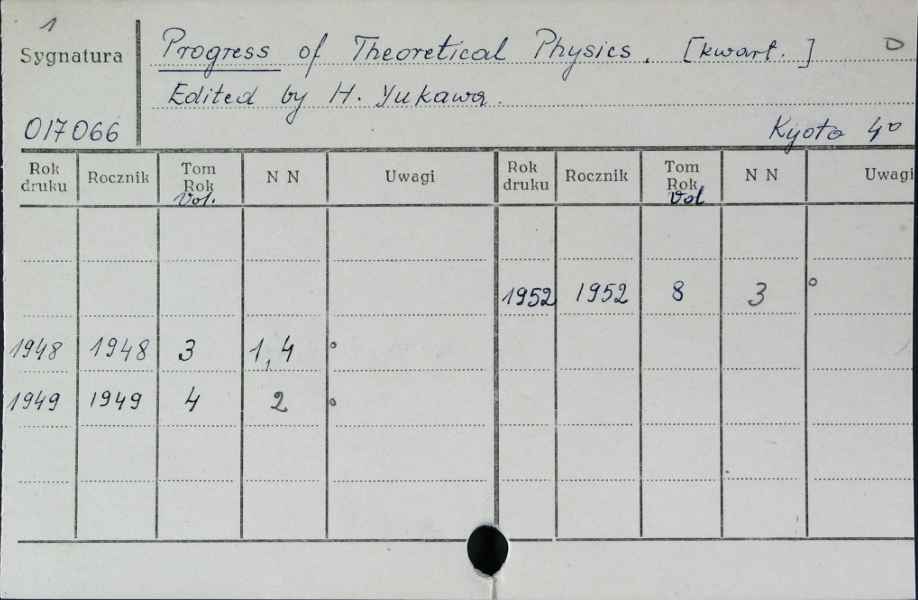 1
Sygnatura
Progress of Theoretical Physics. [kwart.] D
Edited by H. Yukawa.
017066
Kyoto 4°
Rok druku Rocznik Tom Rok Vol. N N Uwagi Rok druku Rocznik Tom Rok Vol N N Uwagi
1952 1952 8 3 °
1948 1948 3 1,4 °
1949 1949 4 2 °